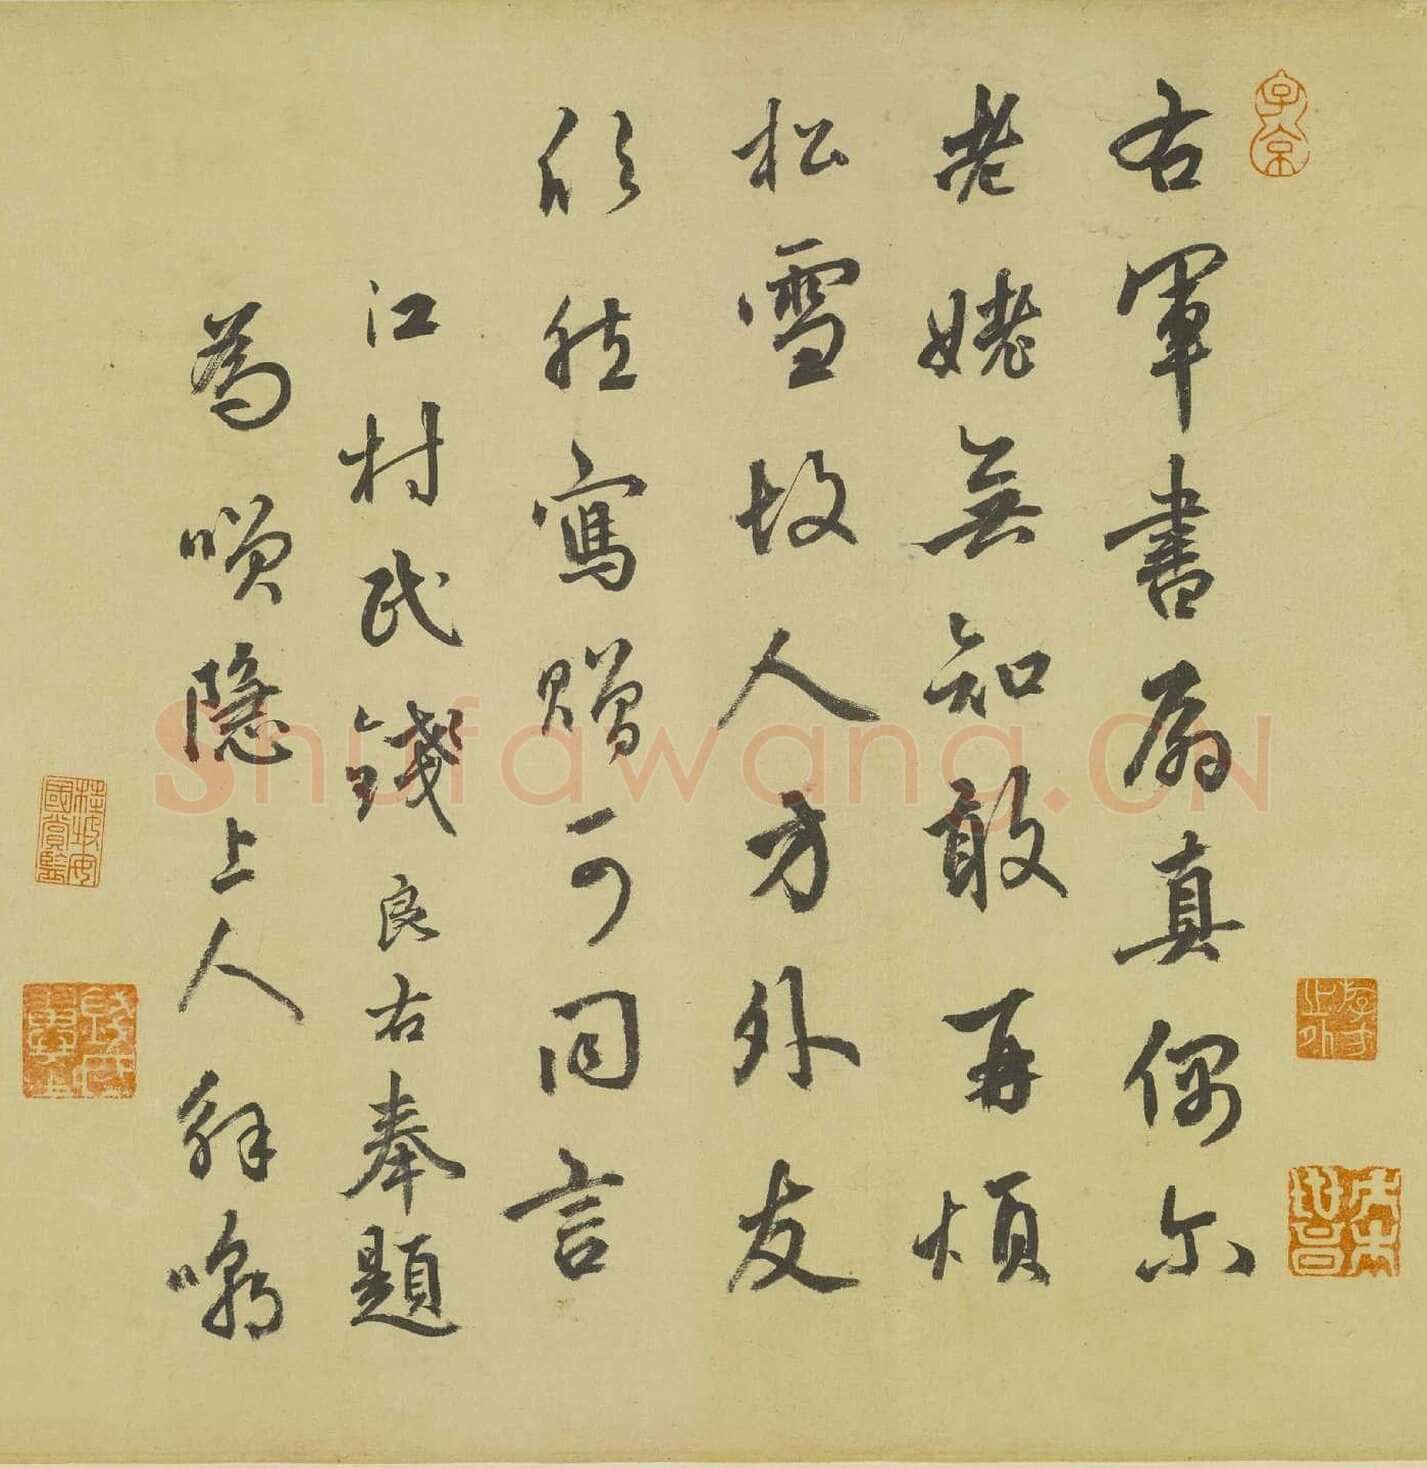 右軍書扇真偶尔
老姥無知敢再煩
松雪故人方外友
欣然寫贈可同言
江村民錢良右奉題
為噴隱上人解嘲
子京
Shufawang.CN